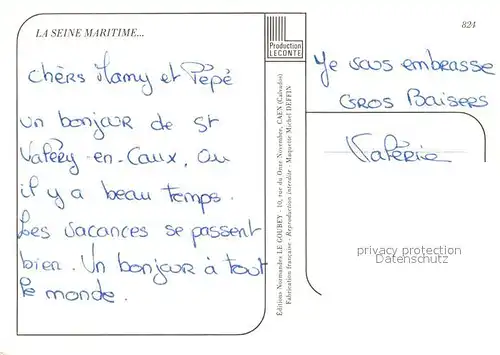 LA SEINE MARITIME...
824
Production
LECONTE
chèrs Mamy et Pépé
un bonjour de St
Valéry-en-Caux, où
il y a beau temps.
Les vacances se passent
bien. Un bonjour à tout
le monde.
Je vous embrasse
Gros Baisers
Valérie
Editions Normandes LE GOUBEY - 10, rue du Onze-Novembre, CAEN (Calvados)
Fabrication française - Reproduction interdite - Maquette Michel DEFFIN
privacy protection
Datenschutz